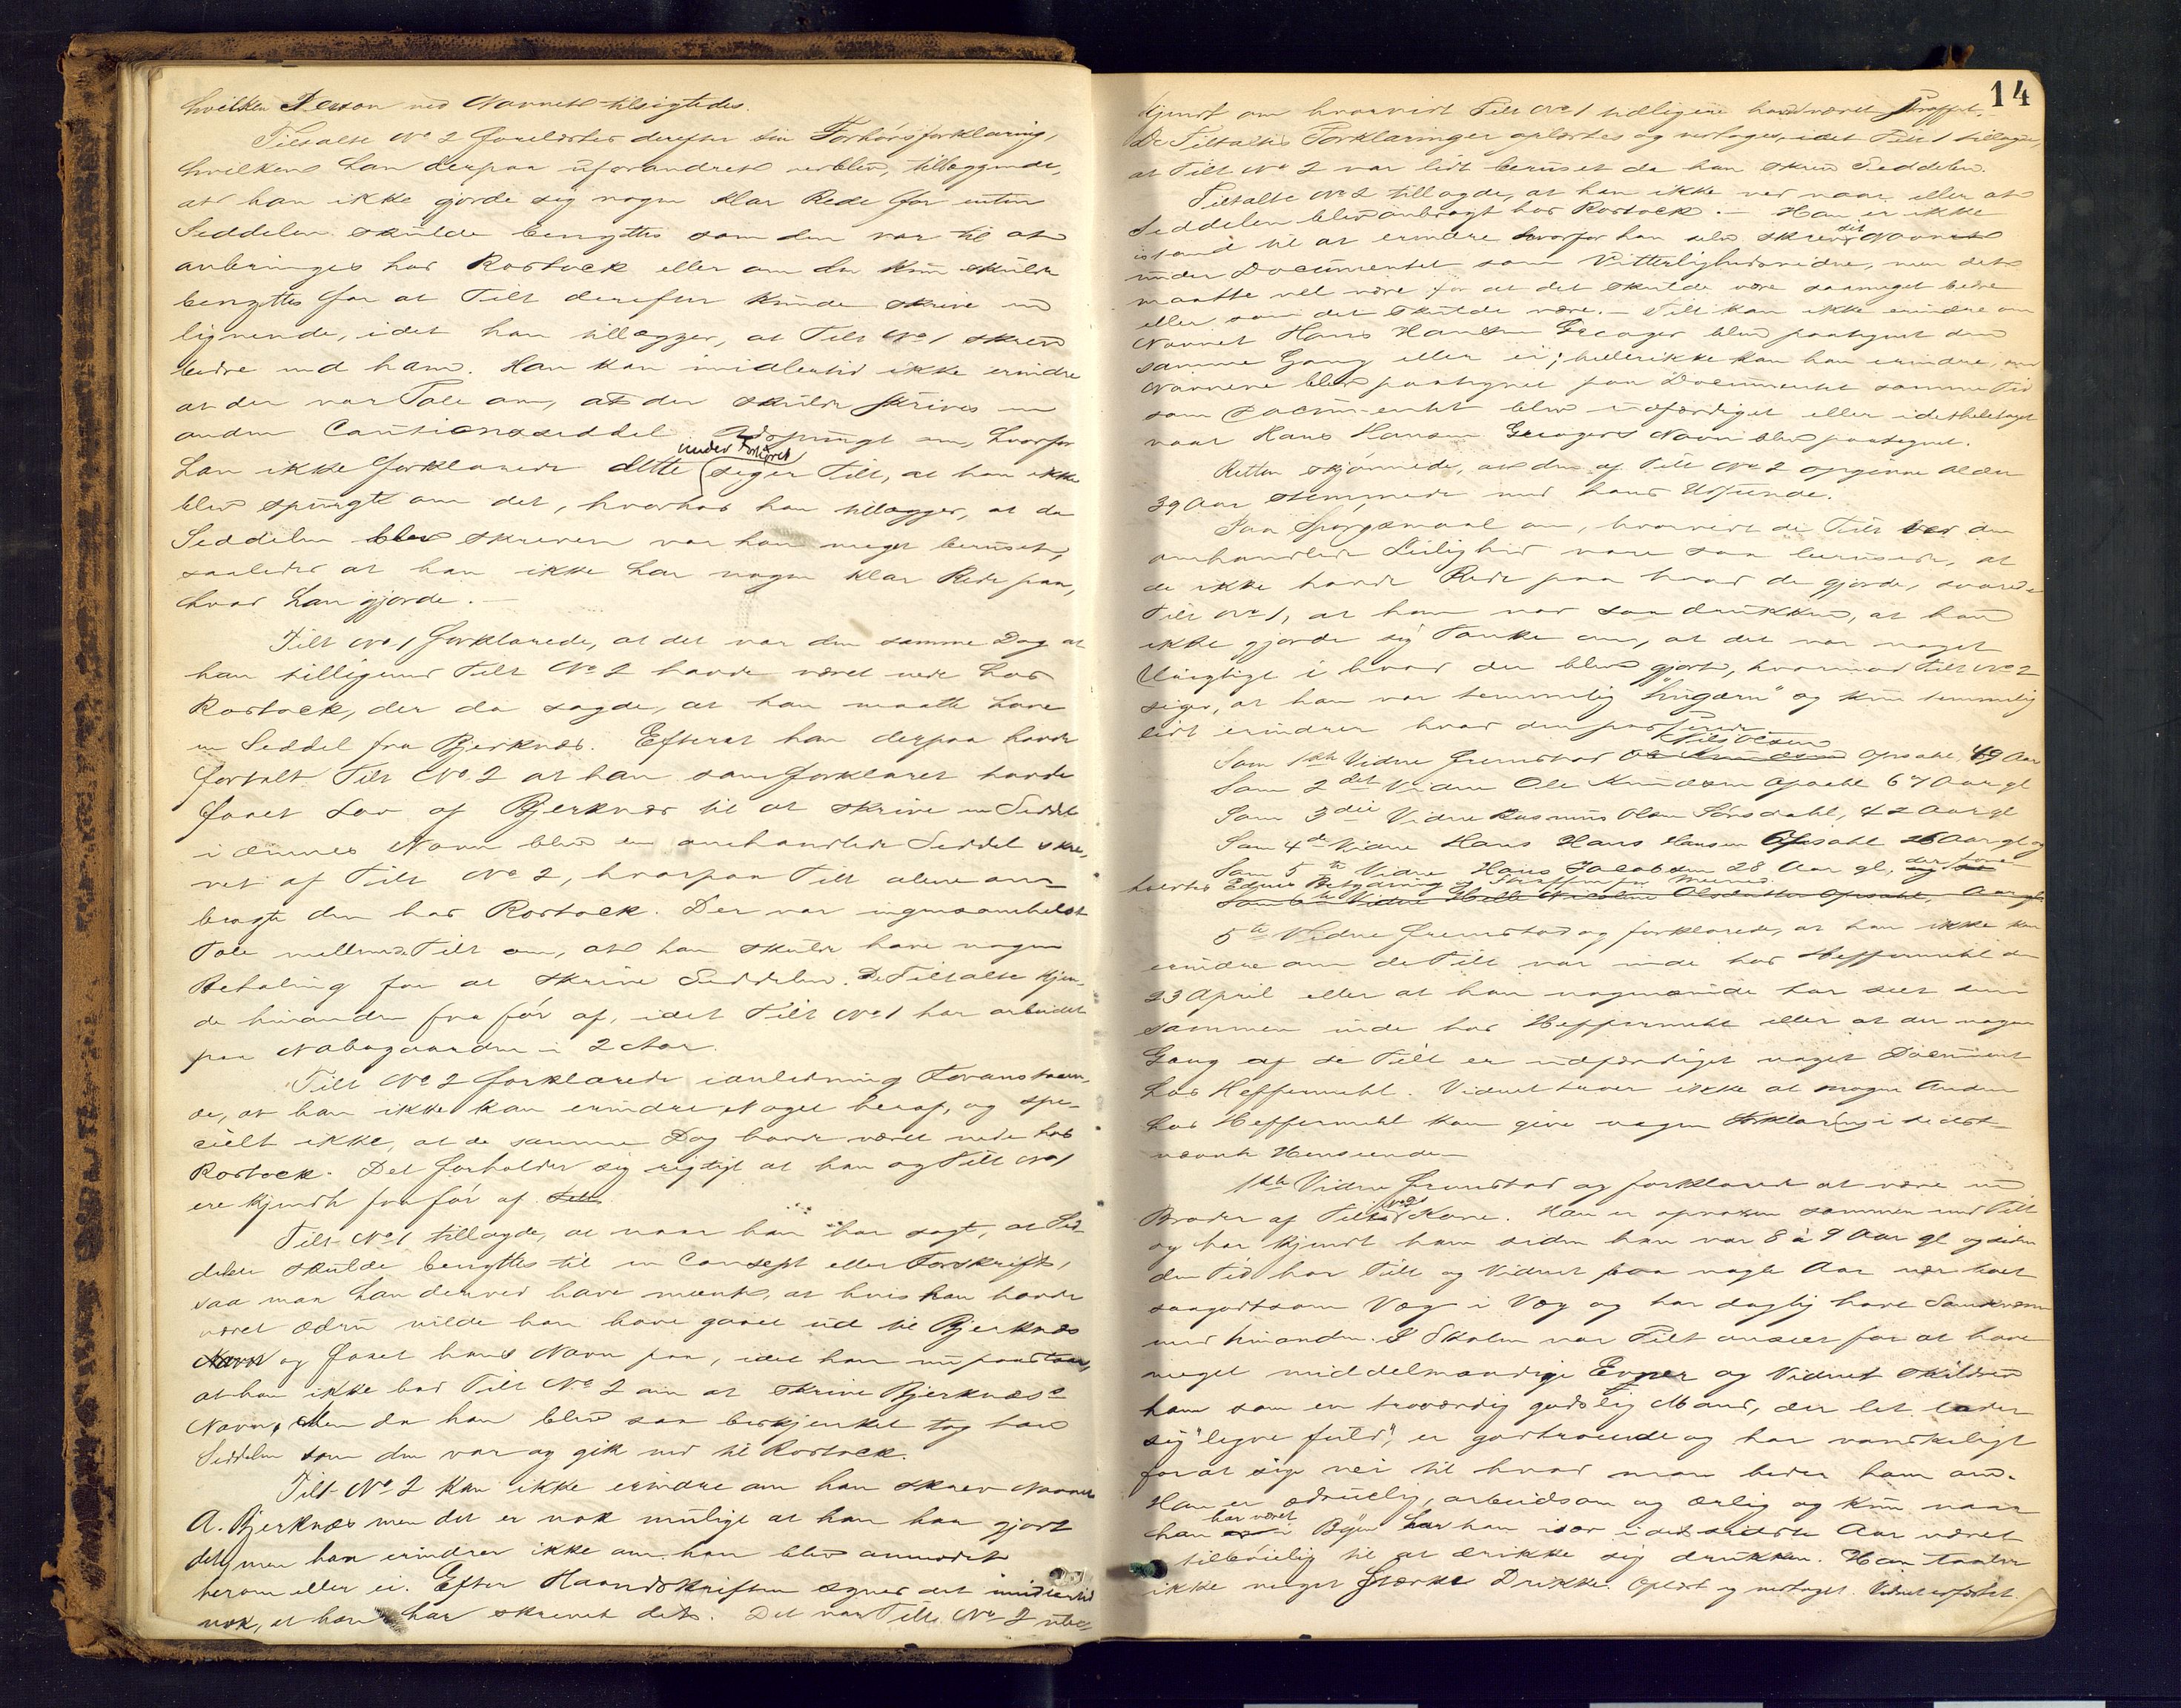 hvilken Person ved Navnet tilsigtedes.
Tiltalte No 2 forelæstes derefter sin Forhørsforklaring,
hvilken han derpaa uforandret vedblev, tillæggende,
at han ikke gjorde sig nogen klar Rede for enten
Seddelen skulde benyttes som den var til at
anbringes hos Rostock eller om den kun skulde
benyttes for at Tilt derefter kunde skrive en
lignende, idet han tillægger, at Tilt No 1 skrev
bedre end ham. Han kan imidlertid ikke erindre
at der var Tale om, at der skulde skrives en
anden Cautionsseddel. Adspurgt om, hvorfor
under Forhøret
han ikke forklarede dette siger Tilt, at han ikke
blev spurgt om det, hvorhos han tillægger, at da
Seddelen blev skreven var han meget beruset,
saaledes at han ikke har nogen klar Rede paa,
hvad han gjorde. —
Tilt No 1 forklarede, at det var den samme Dag at
han tilligemed Tilt No 2 havde været nede hos
Rostock, der da sagde, at han maatte have
en Seddel fra Bjerknæs. Efterat han derpaa havde
fortalt Tilt No 2 at han som forklaret havde
faaet Lov af Bjerknæs til at skrive en Seddel
i dennes Navn blev en omhandlede Seddel skre-
vet af Tilt No 2, hvorpaa Tilt alene an-
bragte den hos Rostock. Der var ingensomhelst
Tale mellem de Tilt om, at han skulde have nogen
Betaling for at skrive Seddelen. De Tiltalte kjen-
de hinanden fra før af, idet Tilt No 1 har arbeidet
paa Nabogaarden i 2 Aar.
Tilt No 2 forklarede i anledning Foranstaaen-
de, at han ikke kan erindre Noget heraf, og spe-
cielt ikke, at de samme Dag havde været nede hos
Rostock. Det forholder sig rigtigt at han og Tilt No 1
ere kjendte fra før af.
Tilt No 1 tillagde, at naar han har sagt, at Sed-
delen skulde benyttes til en Concept eller Forskrift,
saa maa han derved have meent, at hvis han havde
været ædru vilde han have gaaet ud til Bjerknæs
Navn og faaet hans Navn paa, idet han nu paastaar,
at han ikke bad Tilt No 2 om at skrive Bjerknæs's
Navn, Men da han blev saa beskjenket tog han
Seddelen som den var og gik ned til Rostock.
Tilt No 2 kan ikke erindre om han skrev Navnet
A. Bjerknæs men det er nok muligt at han har gjort
det, men han erindrer ikke om han blev anmodet
herom eller ei. Efter Haandskriften synes det imidlertid
nok, at han har skrevet det. Det var Tilt No 2 ube-
14
kjendt om hvorvidt Tilt No 1 tidligere havde været straffet.
De Tiltaltes Forklaringer oplæstes og vedtoges, idet Tilt 1 tillagde,
at Tilt No 2 var lidt beruset da han skrev Seddelen.
Tiltalte No 2 tillagde, at han ikke ved naar eller at
Seddelen blev anbragt hos Rostock. — Han er ikke
istand til at erindre hvorfor han selv skrev sit Navn
under Documentet som Vitterlighedsvidne, men det
maatte vel være for at det skulde være saameget bedre
eller som det skulde være. — Tilt kan ikke erindre om
Navnet Hans Hansen blev paategnet den
samme Gang eller ei; hellerikke kan han erindre, om
Navnene blev paategnet paa Documentet samme Tid
som Documentet blev udfærdiget eller idethele taget
naar Hans Hansen Navn blev paategnet.
Retten skjønnede, at den af Tilt No 2 opgivne Alder
39 Aar stemmede med hans Udseende.
Paa Spørgsmaal om, hvorvidt de Tilt ved den
omhandlede Leilighed vare saa berusede, at
de ikke havde Rede paa hvad de gjorde, svarede
Tilt No 1, at han var saa drukken, at han
ikke gjorde sig Tanke om, at det var noget
Urigtigt i hvad der blev gjort, hvorimod Tilt No 2
siger, at han var temmelig og kun temmelig
lidt erindrer hvad den passerede
Nils Olsen
Som 1ste Vidne fremstod Ole Knudsen Opsahl 49 Aar
Som 2det Vidne Ole Knudsen Opsahl 67 Aar gl
Som 3die Vidne Rasmus Olsen Sørsdahl, 42 Aar gl
Som 4de Vidne Hans Hans Hansen Opsahl 26 Aar gl og
Som 5te Vidne Hans Jacobsen 28 Aar gl, der fore
holdtes Edens Betydning og Straffen for Meened.
Som 6te Vidne Helle Nicoline Olsdatter Opsahl, Aar gl
5te Vidne fremstod og forklarede, at han ikke kan
erindre om de Tilt var inde hos Heffermehl den
23 April eller at han nogensinde har seet dem
sammen inde hos Heffermehl eller at der nogen
Gang af de Tilt er udfærdiget noget Document
hos Heffermehl. Vidnet troer ikke at nogen Anden
hos Heffermehl kan give nogen Forklaring i sidst-
nævnte Henseende —
1ste Vidne fremstod og forklarede at være en
Broder af Tilt No 2s Kone. Han er opvoxen sammen med Tilt
og har kjendt ham siden han var 8 à 9 Aar gl og siden
den Tid har Tilt og Vidnet paa nogle Aar nær boet
saagodtsom Væg i Væg og har daglig havt Samkvem
med hinanden. I Skolen var Tilt anseet for at have
meget middelmaadige Evner og Vidnet skildrer
ham som en troværdig godslig Mand, der let lader
sig "legve fuld", er godtroende og har vanskeligt
for at sige nei til hvad man beder ham om.
Han er ædruelig, arbeidsom og ærlig og kun naar
har været
han er i Byen har han især i det sidste Aar været
tilbøielig til at drikke sig drukken. Han taaler
ikke meget stærke Drikke. Oplæst og vedtaget. Vidnet